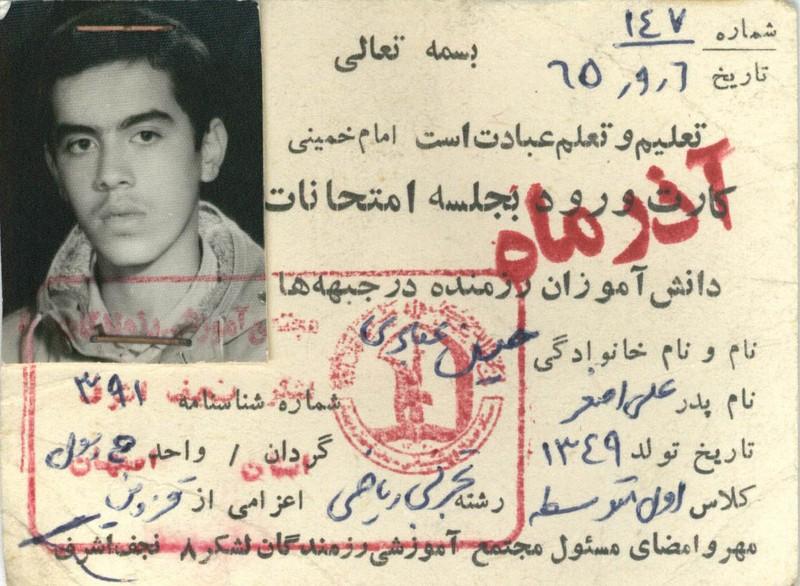 شماره ۱۴۷
تاریخ ۶۵,۹,۶
بسمه تعالی
تعلیم و تعلم عبادت است امام خمینی
کارت ورود بجلسه امتحانات
آذر ماه
دانش‌آموزان رزمنده در جبهه‌ها
نام و نام خانوادگی حسین
نام پدر علی اصغر شماره شناسنامه ۳۹۱
تاریخ تولد ۱۳۴۹ گردان / واحد
کلاس اول متوسطه رشته تجربی ریاضی اعزامی از قزوین
مهر و امضای مسئول مجتمع آموزشی رزمندگان لشکر ۸ نجف اشرف